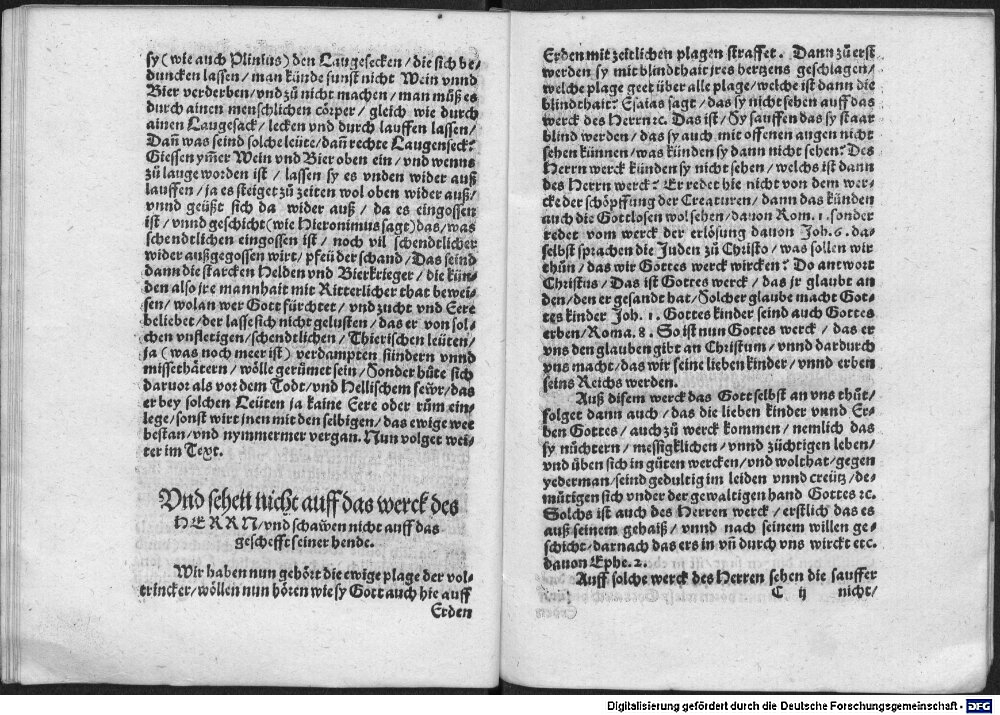 sy (wie auch Plinius) den Laugesecken / die sich be⸗
duncken lassen / man künde sunst nicht Wein vnnd
Bier verderben / vnd zů nicht machen / man můß es
durch ainen menschlichen cörper / gleich wie durch
ainen Laugesack / lecken vnd durch lauffen lassen /
Dañ was seind solche leüte / dañ rechte Laugenseck?
Giessen ym̃er Wein vnd Bier oben ein / vnd wenns
zů lauge worden ist / lassen sy es vnden wider auß
lauffen / ja es steiget zů zeiten wol oben wider auß /
vnnd geüßt sich da wider auß / da es eingossen
ist / vnnd geschicht (wie Hieronimus sagt) das / was
schendtlichen eingossen ist / noch vil schendtlicher
wider außgegossen wirt / pfeü der schand / Das seind
dann die starcken Helden vnd Bierkrieger / die kün⸗
den also jre mannhait mit Ritterlicher that bewei⸗
sen / wolan wer Gott fürchtet / vnd zucht vnd Eere
beliebet / der lasse sich nicht gelusten / das er von sol⸗
chen vnfletigen / schendtlichen / Thierischen leüten /
ja (was noch meer ist) verdampten sündern vnnd
missethätern / wölle gerümet sein / Sonder hüte sich
daruor als vor dem Todt / vnd Hellischem fewr / das
er bey solchen Leüten ja kaine Eere oder rům ein⸗
lege / sonst wirt jnen mit den selbigen / das ewige wee
bestan / vnd nymmermer vergan. Nun volget wei⸗
ter im Text.
Vnd sehen nicht auff das werck des
HERRN / vnd schawen nicht auff das
geschefft seiner hende.
Wir haben nun gehört die ewige plage der vol⸗
trincker / wöllen nun hören wie sy Gott auch hie auff
Erden
Erden mit zeitlichen plagen straffet. Dann zů erst
werden sy mit blindthait jres hertzens geschlagen /
welche plage geet über alle plage / welche ist dann die
blindthait? Esaias sagt / das sy nicht sehen auff das
werck des Herrn ꝛc. Das ist / Sy sauffen das sy staar
blind werden / das sy auch mit offenen augen nicht
sehen künnen / was künden sy dann nicht sehen? Des
Herrn werck künden sy nicht sehen / welchs ist dann
des Herrn werck? Er redet hie nicht von dem wer⸗
cke der schöpffung der Creaturen / dann das künden
auch die Gottlosen wol sehen / dauon Rom. 1. sonder
redet vom werck der erlösung dauon Joh. 6. da⸗
selbst sprachen die Juden zů Christo / was sollen wir
thůn / das wir Gottes werck wircken? Do antwort
Christus / Das ist Gottes werck / das jr glaubt an
den / den er gesandt hat / Solcher glaube macht Got⸗
tes kinder Joh. 1. Gottes kinder seind auch Gottes
erben / Roma. 8. So ist nun Gottes werck / das er
vns den glauben gibt an Christum / vnnd dardurch
vns macht / das wir seine lieben kinder / vnnd erben
seins Reichs werden.
Auß disem werck das Gott selbst an vns thůt /
folget dann auch / das die lieben kinder vnnd Er⸗
ben Gottes / auch zů werck kommen / nemlich das
sy nüchtern / messigklichen / vnnd züchtigen leben /
vnd üben sich in gůten wercken / vnd wolthat / gegen
yederman / seind gedultig im leiden vnnd creütz / de⸗
mütigen sich vnder der gewaltigen hand Gottes ꝛc.
Solchs ist auch des Herren werck / erstlich das es
auß seinem gehaiß / vnnd nach seinem willen ge⸗
schicht / darnach das ers in vñ durch vns wirckt etc.
dauon Ephe. 2.
Auff solche werck des Herren sehen die sauffer
C ij nicht /
Digitalisierung gefördert durch die Deutsche Forschungsgemeinschaft - DFG